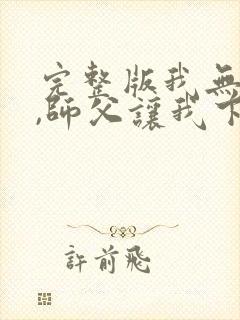 完整版我無
,師父讓我下
許前飛